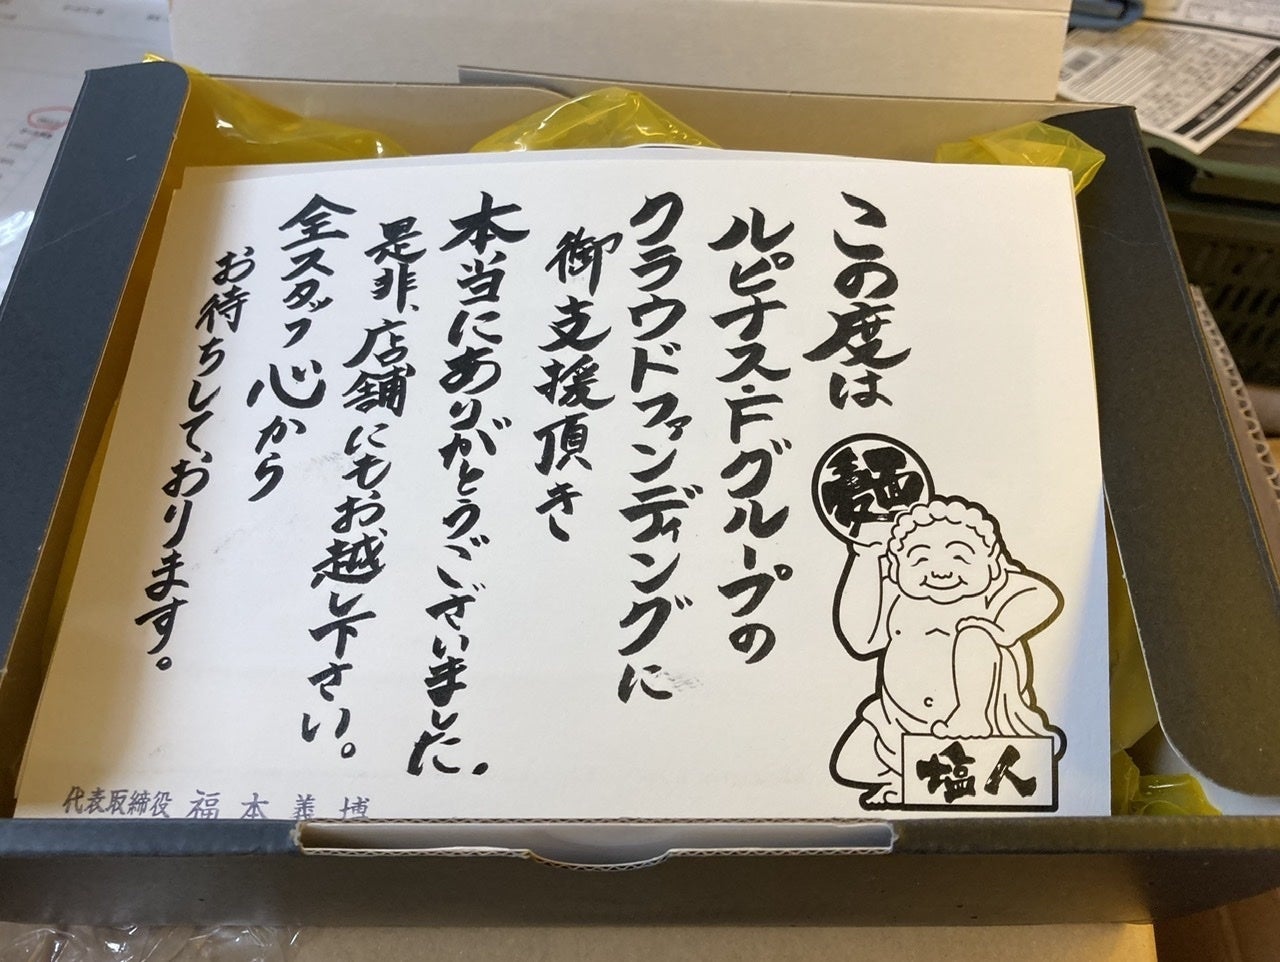 この度は
ルピナス.Fグループの
クラウドファンディングに
御支援頂き
本当にありがとうございました.
是非、店舗にもお越し下さい。
全スタッフ心から
お待ちしております。
代表取締役 福本義博
麺
塩人